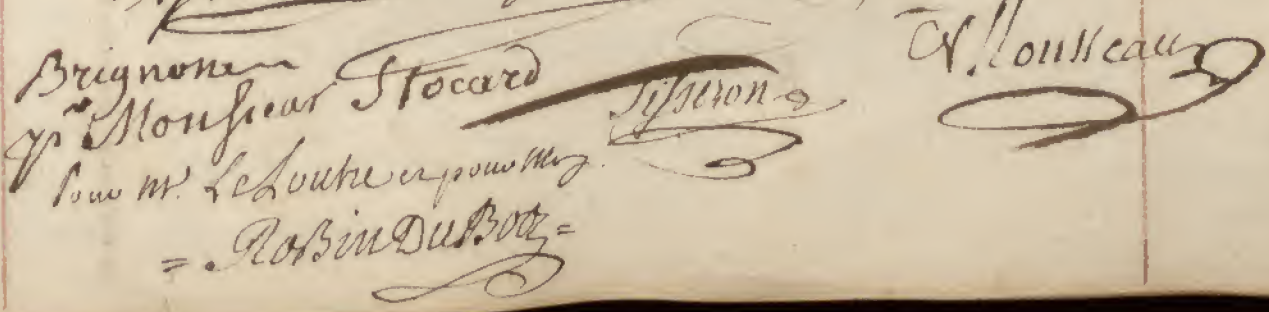 Brignonen
pr Monsieur Stocard
Tisseron
N. Rousseau
Pour Mr. LeLoutre et pour moy
= RoBin DuBotz =